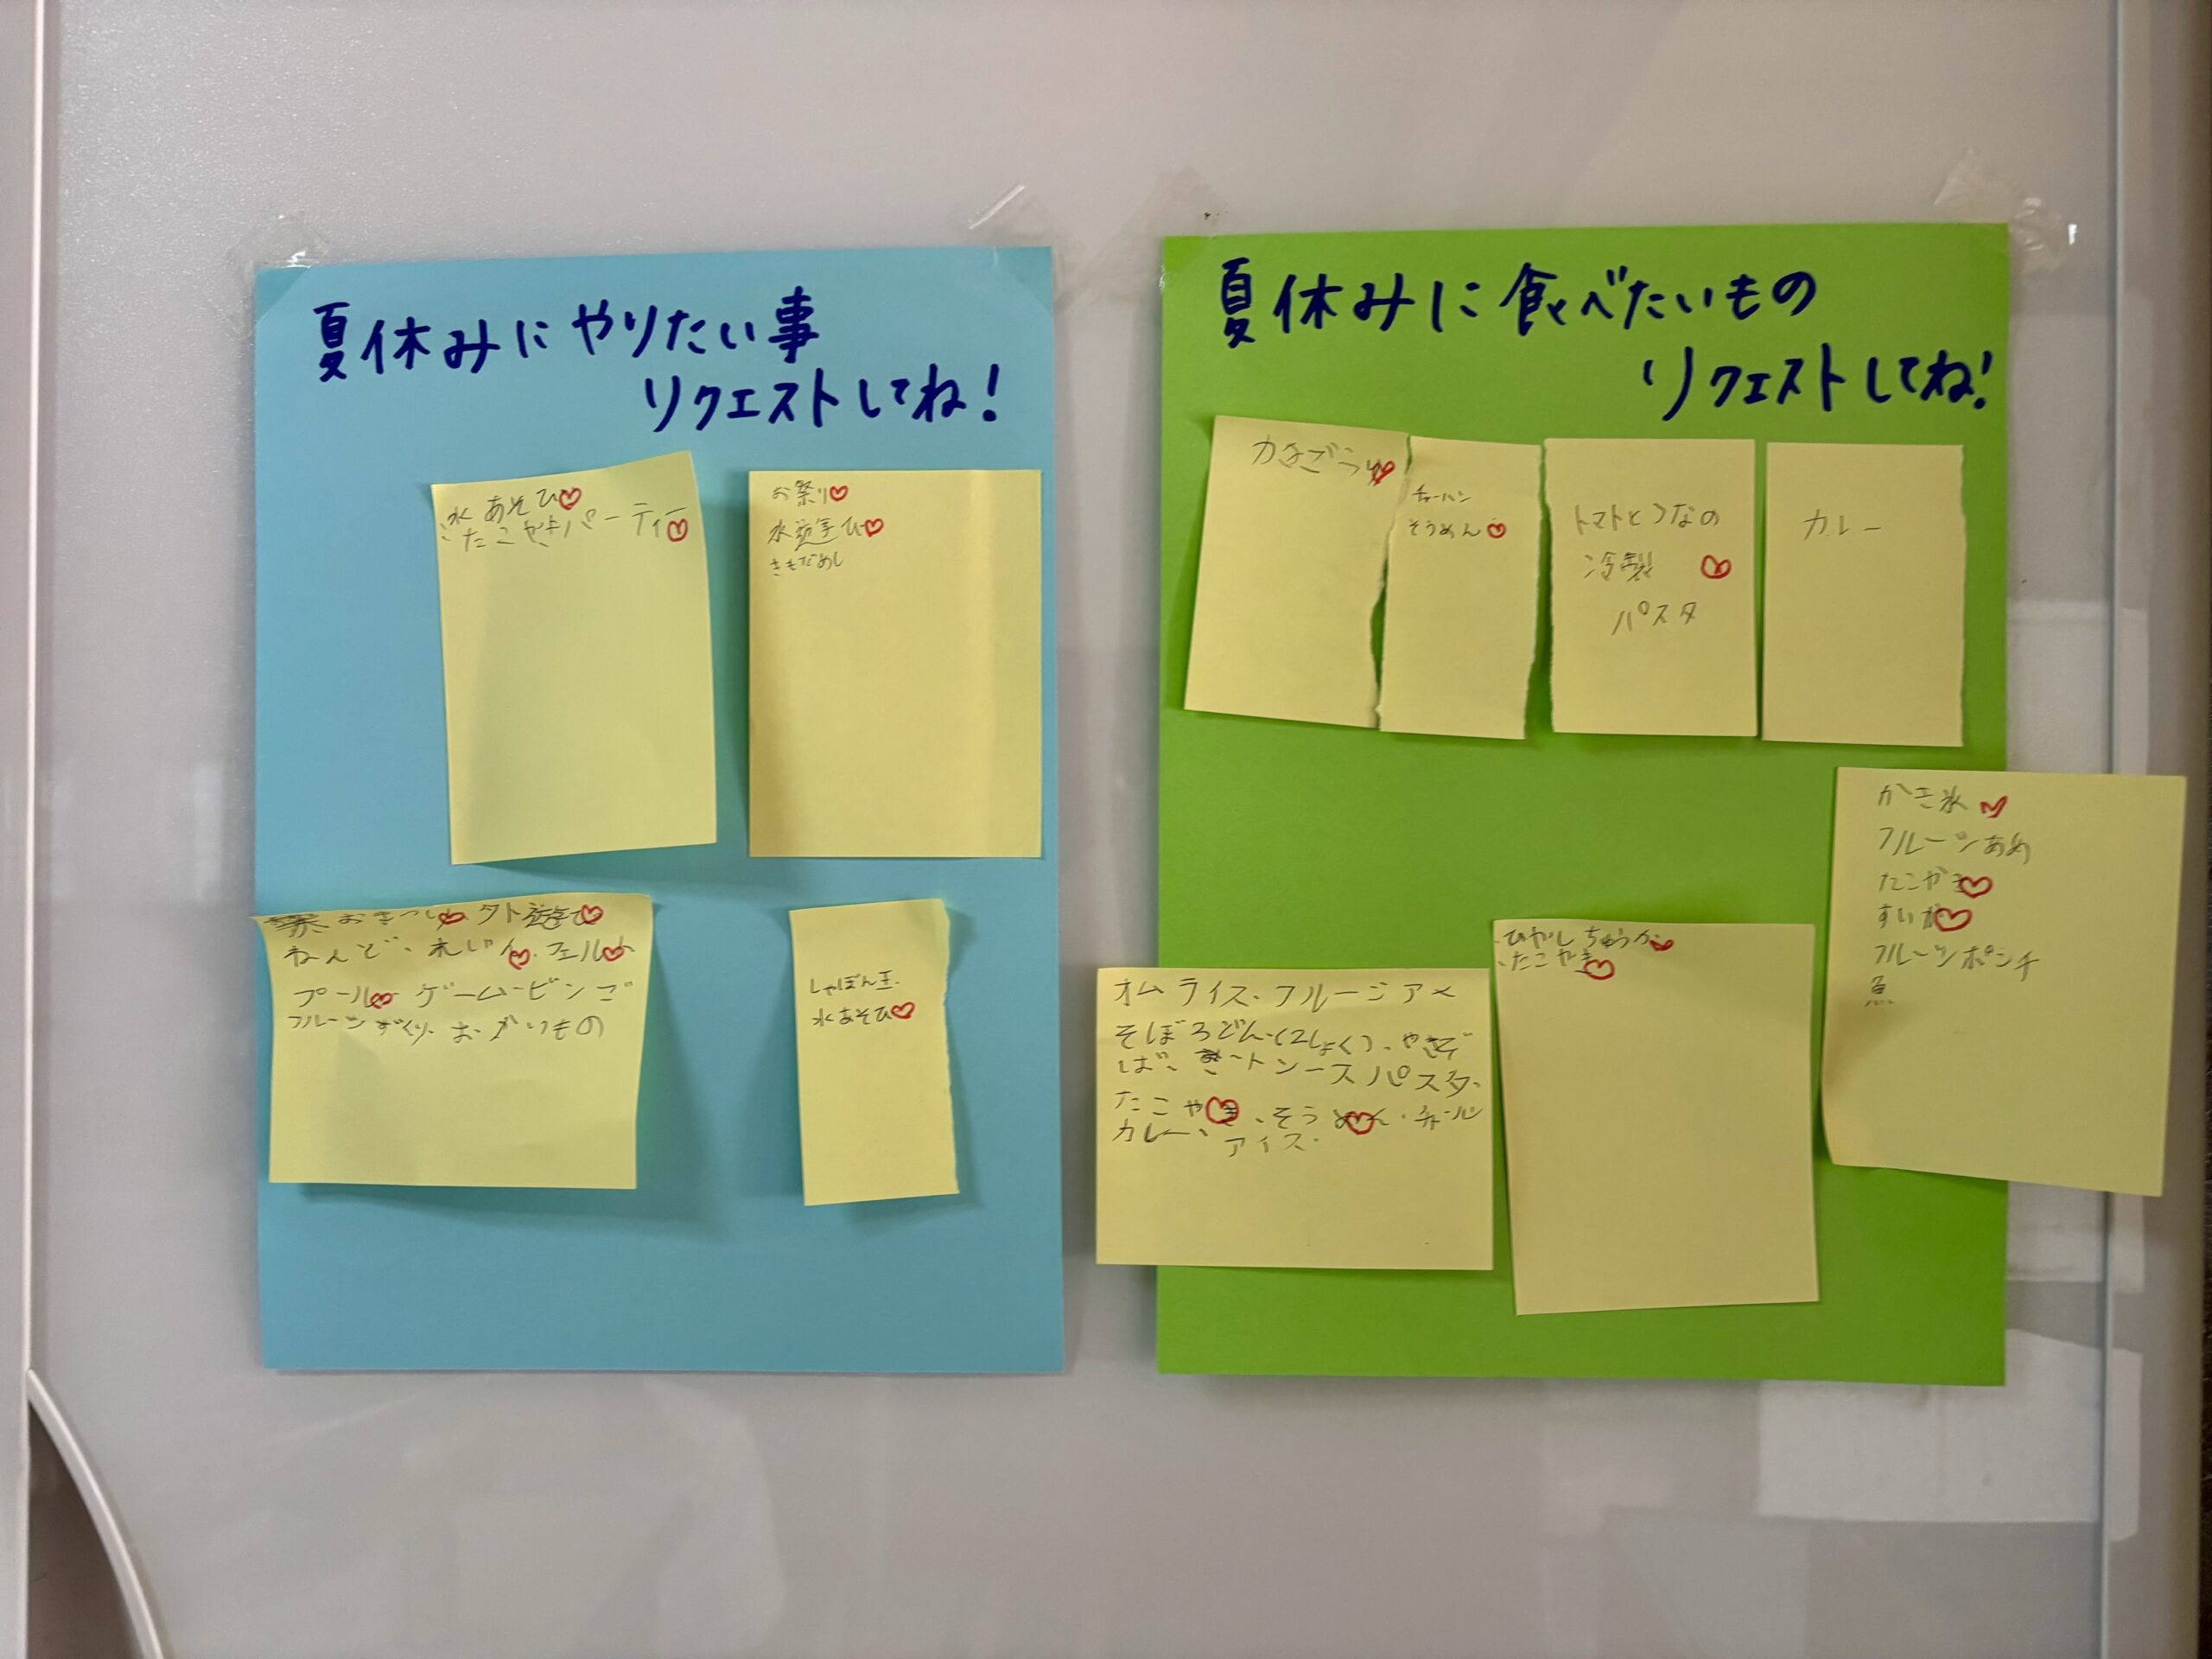 夏休みにやりたい事
リクエストしてね!
水あそび
たこやきパーティー
お祭り
水遊び
きもだめし
おまつり 外遊び
ねんど、れじん、フェルト
プール ゲームービンゴ
フルーツ おかいもの
しゃぼん玉
水あそび
夏休みに食べたいもの
リクエストしてね!
かきごうり
チャーハン
そうめん
トマトとつなの
冷製
パスタ
カレー
かき氷
フルーツあめ
たこやき
すいか
フルーツポンチ
魚
ひやしちゅうか
たこやき
オムライス、フルーツアメ
そぼろどん(2しょく)、やきそ
ば、ミートソースパスタ、
たこやき、そうめん、チャーハン
カレー、アイス、